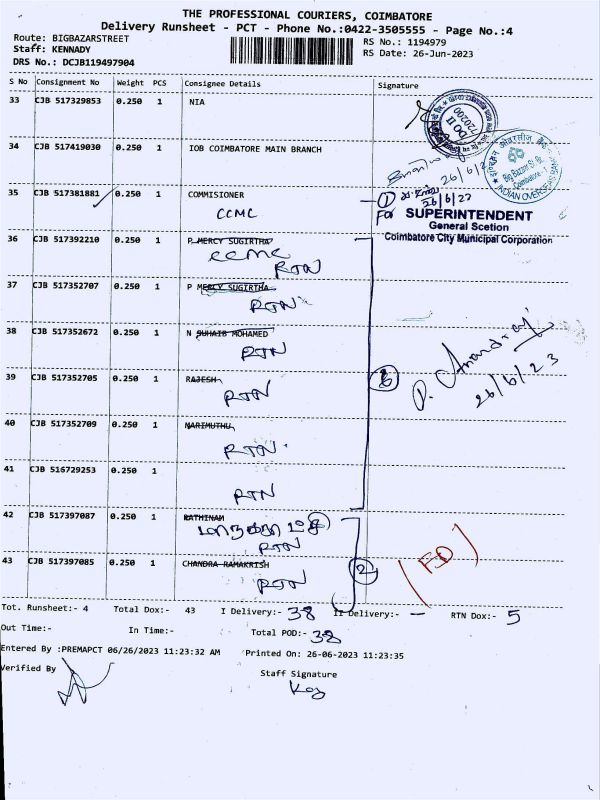 THE PROFESSIONAL COURIERS, COIMBATORE
Delivery Runsheet - PCT - Phone No.:0422-3505555 - Page No.:4
Route: BIGBAZARSTREET
RS No.: 1194979
Staff: KENNADY
RS Date: 26-Jun-2023
DRS No.: DCJB119497904
S No Consignment No Weight PCS Consignee Details Signature
33 CJB 517329853 0.250 1 NIA
34 CJB 517419030 0.250 1 IOB COIMBATORE MAIN BRANCH
26/6/2
Big Bazaar St. Br.
Coimbatore
INDIAN OVERSEAS BANK
35 CJB 517381881 0.250 1 COMMISIONER
CCMC
1
26/6/23
For SUPERINTENDENT
General Scetion
Coimbatore City Municipal Corporation
36 CJB 517392210 0.250 1 P MERCY SUGIRTHA
CCMC
RTN
37 CJB 517352707 0.250 1 P MERCY SUGIRTHA
RTN
38 CJB 517352672 0.250 1 N SUHAIB MOHAMED
RTN
39 CJB 517352705 0.250 1 RAJESH
RTN
6
26/6/23
40 CJB 517352709 0.250 1 MARIMUTHU
RTN
41 CJB 516729253 0.250 1
RTN
42 CJB 517397087 0.250 1 RATHINAM
RTN
43 CJB 517397085 0.250 1 CHANDRA RAMAKRISH
RTN
2
Tot. Runsheet:- 4 Total Dox:- 43 I Delivery:- 38 II Delivery:- - RTN Dox:- 5
Out Time:- In Time:- Total POD:- 38
Entered By :PREMAPCT 06/26/2023 11:23:32 AM Printed On: 26-06-2023 11:23:35
Verified By
Staff Signature